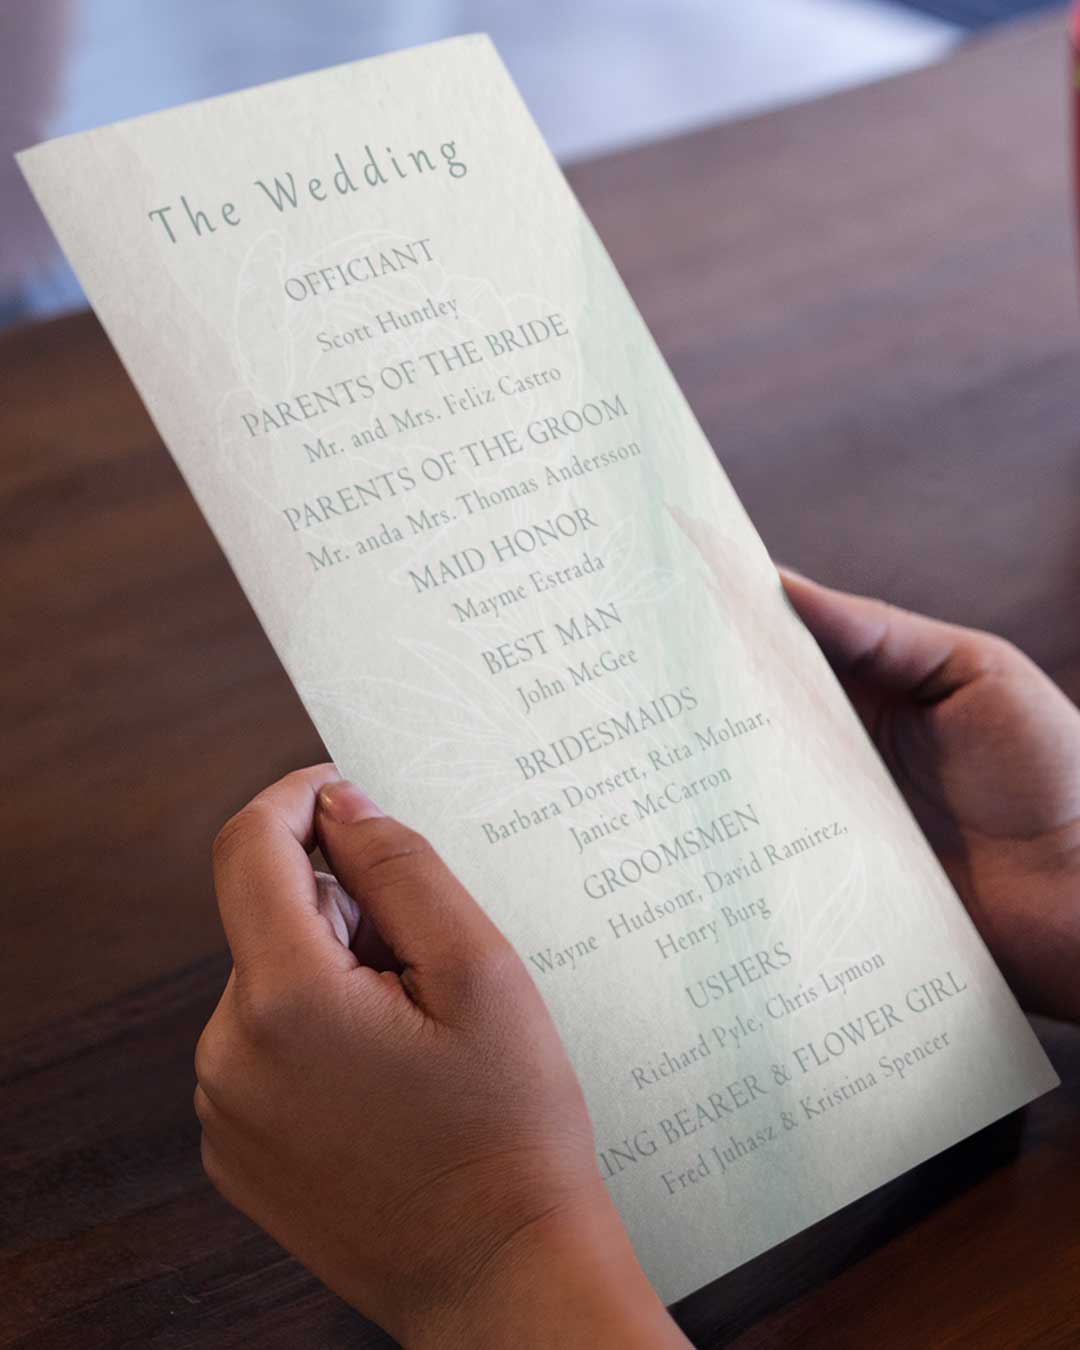 The Wedding
OFFICIANT
Scott Huntley
PARENTS OF THE BRIDE
Mr. and Mrs. Feliz Castro
PARENTS OF THE GROOM
Mr. anda Mrs. Thomas Andersson
MAID HONOR
Mayme Estrada
BEST MAN
John McGee
BRIDESMAIDS
Barbara Dorsett, Rita Molnar,
Janice McCarron
GROOMSMEN
Wayne Hudsonr, David Ramirez,
Henry Burg
USHERS
Richard Pyle, Chris Lymon
ING BEARER & FLOWER GIRL
Fred Juhasz & Kristina Spencer